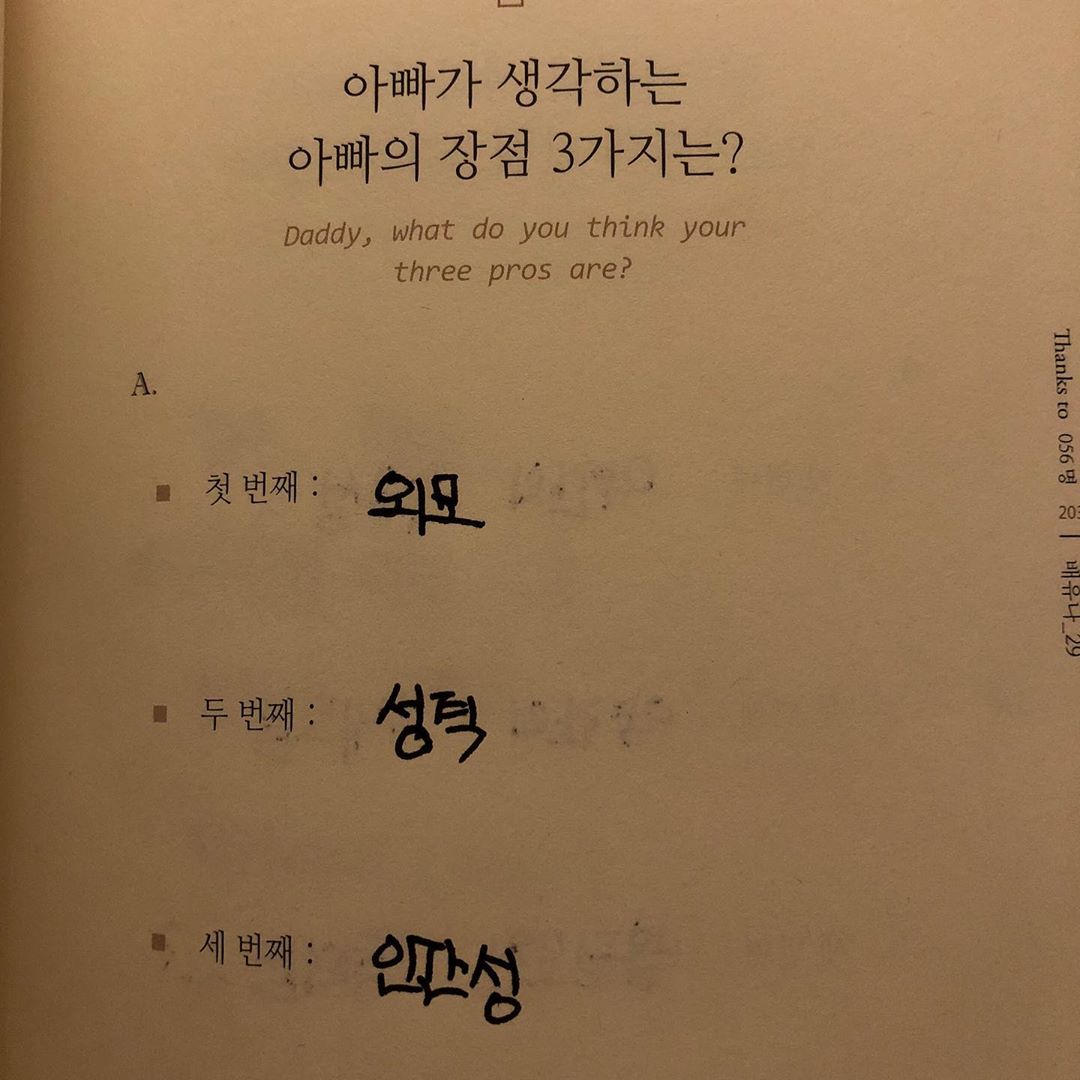 아빠가 생각하는
아빠의 장점 3가지는?
Daddy, what do you think your
three pros are?
A.
첫 번째 : 외모
두 번째 : 성턱
세 번째 : 인간성
Thanks to 056명 203 | 배유나_29